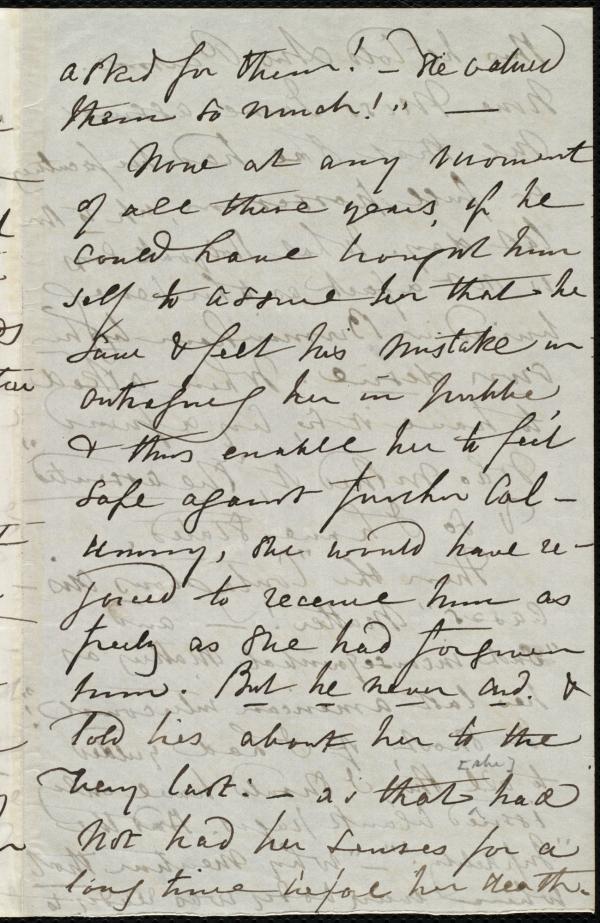 asked for them! – She valued
them so much!" —
Now at any moment
of all these years, if he
could have brought him
self to assure her that he
saw & felt his mistake in
outraging her in public,
& thus enable her to feel
safe against further cal-
umny, she would have re-
joiced to receive him as
freely as she had forgiven
him. But he never did. &
told lies about her to the
[she]
very last: – as that had
not had her senses for a
long time before her death.